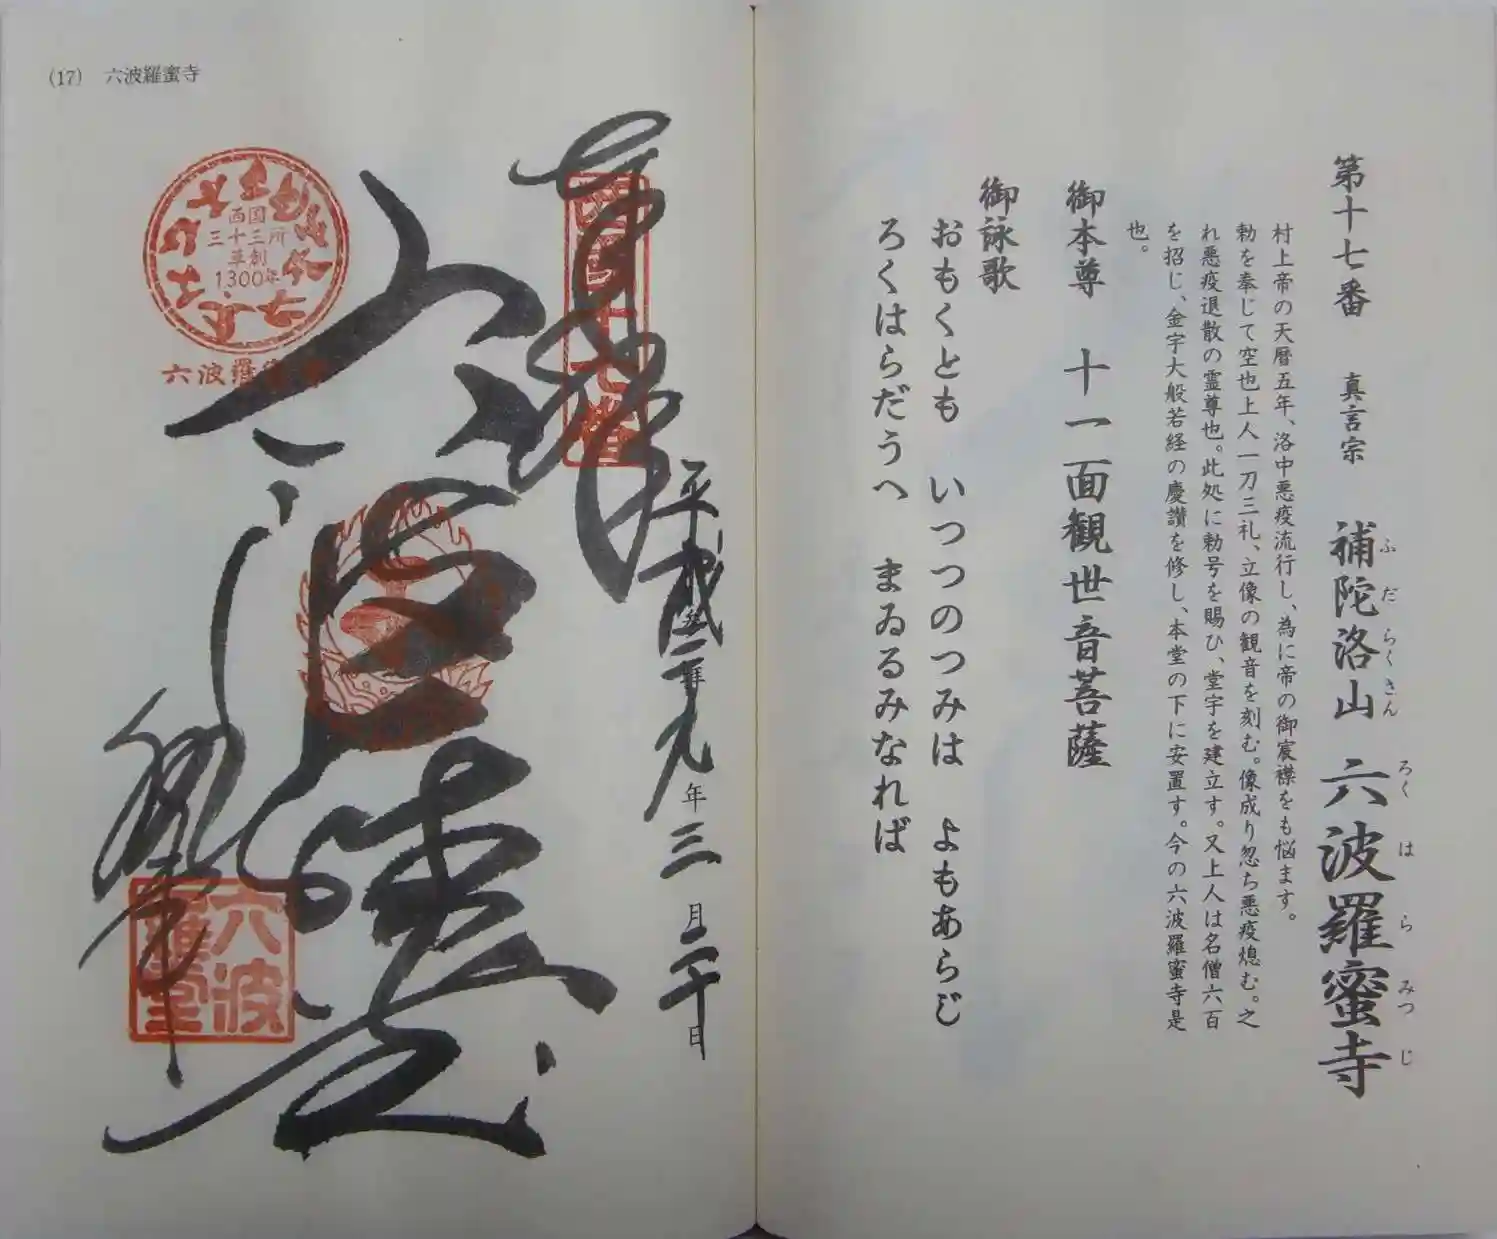 第十七番 真言宗 補陀洛山 六波羅蜜寺
ふだらくさん ろくはらみつじ
村上帝の天暦五年、洛中悪疫流行し、為に帝の御宸襟をも悩ます。
勅を奉じて空也上人一刀三礼、立像の観音を刻む。像成り忽ち悪疫熄む。之
れ悪疫退散の霊尊也。此処に勅号を賜ひ、堂宇を建立す。又上人は名僧六百
を招じ、金字大般若経の慶讃を修し、本堂の下に安置す。今の六波羅蜜寺是
也。
御本尊 十一面観世音菩薩
御詠歌
おもくとも いつつのつみは よもあらじ
ろくはらだうへ まゐるみなれば
(17) 六波羅蜜寺
奉拝
平成二十九年三月二十日
西国
三十三所
草創
1300年
六波羅蜜寺
六波
羅堂